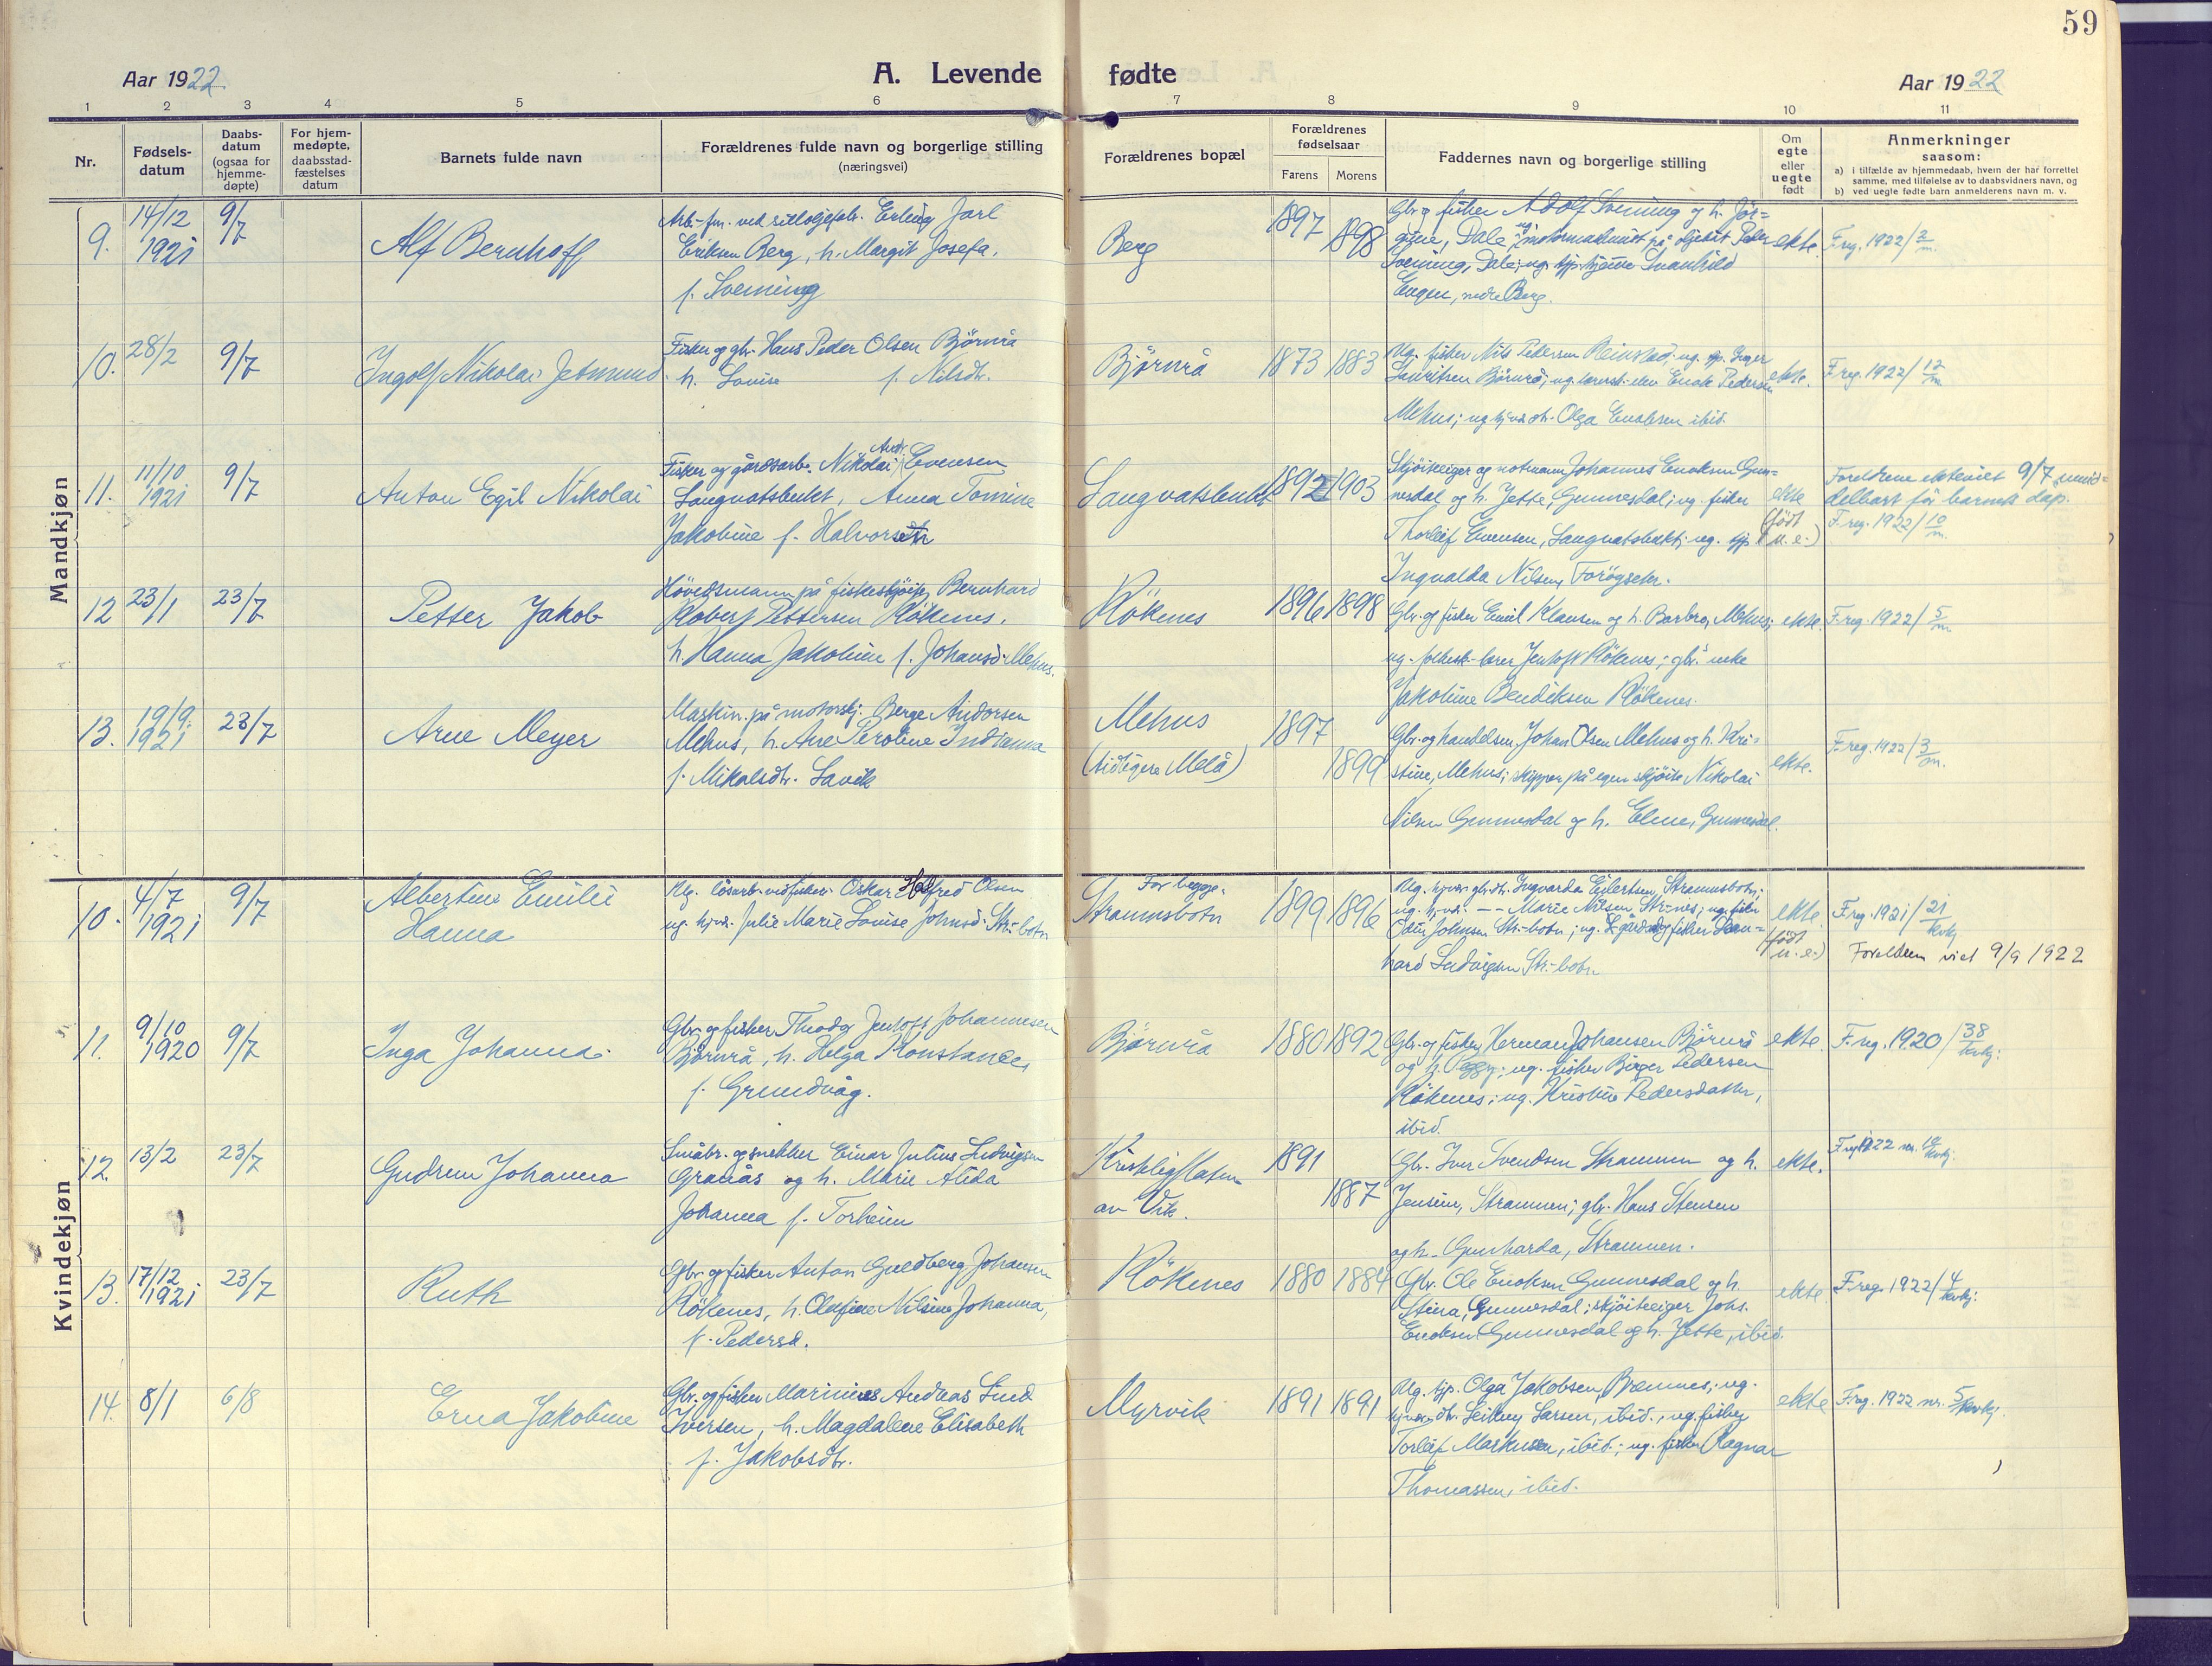 59
Aar 1922
A. Levende fødte
Aar 1922
1 2 3 4 5 6 7 8 9 10 11
Nr.
Fødsels-
datum
Daabs-
datum
(ogsaa for
hjemme-
døpte)
For hjem-
medøpte,
daabsstad-
fæstelses
datum
Barnets fulde navn
Forældrenes fulde navn og borgerlige stilling
(næringsvei)
Forældrenes bopæl
Forældrenes
fødselsaar
Farens Morens
Faddernes navn og borgerlige stilling
Om
egte
eller
uegte
født
Anmerkninger
saasom:
a) i tilfælde av hjemmedaab, hvem der har forrettet
samme, med tilføielse av to daabsvidners navn, og
b) ved uegte fødte barn anmelderens navn m. v.
Mandkjøn
9.
14/12
1921
9/7
Alf Bernhoff
Arb.-fm. ved sildoljefabr. Erling Jarl
Eriksen Berg, h. Margit Josefa,
f. Svenning
Berg
1897
1898
Gbr. og fisker Adolf Svening og h. Jör-
gine, Dale; ug. motormaskinist på Peder
Svening, Dale; ug. tjp. Svanhild
Engen, nedre Berg.
ekte.
F.reg. 1922/2 m.
10.
28/2
9/7
Ingolf Nikolai Jetmund
Fisker og gbr. Hans Peder Olsen Björnrå
h. Lovise f. Nilsdtr.
Björnrå
1873 1883
Ug. fisker Nils Pedersen Reinstad; ug. tjp. Inger
Lauritsen Björnrå; ug. lærersk.-elev Enok Pedersen
Mehus; ug. hjv. dtr. Olga Enoksen ibid.
ekte.
F.reg. 1922/12 m.
11.
11/10
1921
9/7
Anton Egil Nikolai
Fisker og gårdsarb. Nikolai Andr. Evensen
Langvatsbukt, Anna Tomine
Jakobine f. Halvorsdtr
Langvatsbukt
1892 1903
Skjöiteeier og notmann Johannes Enoksen Gun-
nesdal og h. Jette, Gunnesdal; ug. fisker
Thorleif Evensen, Langvatsbukt; ug. tjp.
Ingvalda Nilsen, Foröyseter.
ekte
(födt
u.e.)
Foreldrene ekteviet 9/7 umid-
delbart för barnets dåp.
F.reg. 1922/10 m.
12
23/1
23/7
Petter Jakob
Hövedsmann på fiskeskjöite Bernhard
Robert Pettersen Rökenes,
h. Hanna Jakobine f. Johansd. Mehus.
Rökenes
1896 1898
Gbr. og fisker Emil Klausen og h. Barbro, Mehus;
ug. folkesk.-lærer Jentoft Rökenes; gbr.enke
Jakobine Bendiksen Rökenes.
ekte.
F.reg. 1922/5 m.
13.
19/9.
1921
23/7
Arne Meyer
Maskin. på motorskj. Berge Andorsen
Mehus, h. Ane Peroline Indianna
f. Mikalsdtr. Lavik
Mehus
(tidligere Melå)
1897
1899
Gbr. og handelsm. Johan Olsen Mehus og h. Kri-
stine, Mehus; skipper på egen skjöite Nikolai
Nilsen Gunnesdal og h. Eline, Gunnesdal.
ekte.
F.reg. 1922/3 m.
Kvindekjøn
10.
4/7
1921
9/7
Albertine Emilie
Hanna
Ug. lösarb. ved fisker. Oskar Halfred Olsen
ug. hjv. Julie Marie Lovise Johnsd. Str.-botn
For begge:
Straumsbotn
1899 1896
Ug. hjv. gbr.dtr. Ingvarda Eilertsen, Straumsbotn;
ug. hjv. -- Marie Nilsen Str.nes; ug. fisker
Odin Johnsen Str.-botn; ug. fisker
hard Ludvigsen Str.-botn
ekte
(födt
u.e.)
F.reg. 1921/21 kvkj.
Foreldrene viet 9/9 1922
11.
9/10
1920
9/7
Inga Johanna
Gbr. og fisker Theodor Jentoft Johannesen
Björnrå, h. Helga Konstance,
f. Grundvåg.
Björnrå
1880 1892
Gbr. og fisker Herman Johansen Björnrå
og h. Peggy; ug. fisker Birger Pedersen
Rökenes; ug. Kristine Pedersdatter,
ibid.
ekte.
F.reg. 1920/38 kvkj.
12.
13/2
23/7
Gudrun Johanna
Småbr. og snekker Einar Julius Ludvigsen
Granås og h. Marie Alida
Johanna f. Torheim
av Vik.
1891
1887
Gbr. Iver Svendsen Strammen og h.
Jensine, Strammen; gbr. Hans Stensen
og h. Gunharda, Strammen.
ekte.
F.reg. 1922 nr. kvkj.
13.
17/12
1921
23/7
Ruth
Gbr. og fisker Anton Guldberg Johansen
Rökenes, h. Olufine Nilsine Johanna,
f. Pedersd.
Rökenes
1880 1884
Gbr. Ole Enoksen Gunnesdal og h.
Stina, Gunnesdal; skjöiteeiger Johs.
Enoksen Gunnesdal og h. Jette, ibid.
ekte
F.reg. 1922/4 kvkj.
14.
8/1
6/8
Erna Jakobine
Gbr. og fisker Marinius Andreas Lind
Iversen, h. Magdalene Elisabeth
f. Jakobsdtr.
Myrvik
1891 1891
Ug. tjp. Olga Jakobsen, Bremnes; ug.
hjv. dtr. Larsen, ibid.; ug. fisker
Torleif Markussen, ibid.; ug. fisker Ragnar
Thomassen, ibid.
ekte
F.reg. 1922 nr. 5 kvkj.